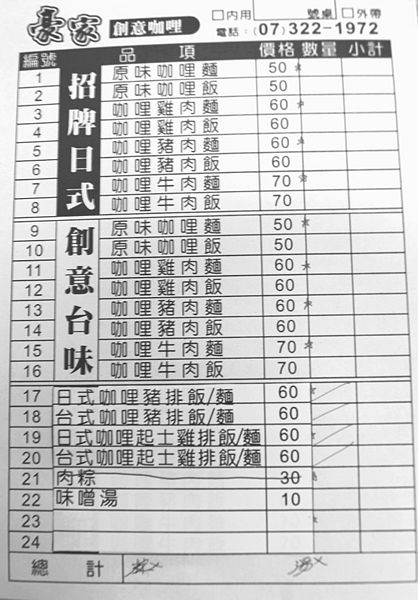 豪家 創意咖哩 □內用 號桌 □外帶
電話：(07)322-1972
編號 品項 價格 數量 小計
招牌日式
1 原味咖哩麵 50
2 原味咖哩飯 50
3 咖哩雞肉麵 60
4 咖哩雞肉飯 60
5 咖哩豬肉麵 60
6 咖哩豬肉飯 60
7 咖哩牛肉麵 70
8 咖哩牛肉飯 70
創意台味
9 原味咖哩麵 50
10 原味咖哩飯 50
11 咖哩雞肉麵 60
12 咖哩雞肉飯 60
13 咖哩豬肉麵 60
14 咖哩豬肉飯 60
15 咖哩牛肉麵 70
16 咖哩牛肉飯 70
17 日式咖哩豬排飯/麵 60
18 台式咖哩豬排飯/麵 60
19 日式咖哩起士雞排飯/麵 60
20 台式咖哩起士雞排飯/麵 60
21 肉粽 30
22 味噌湯 10
23
24
總計